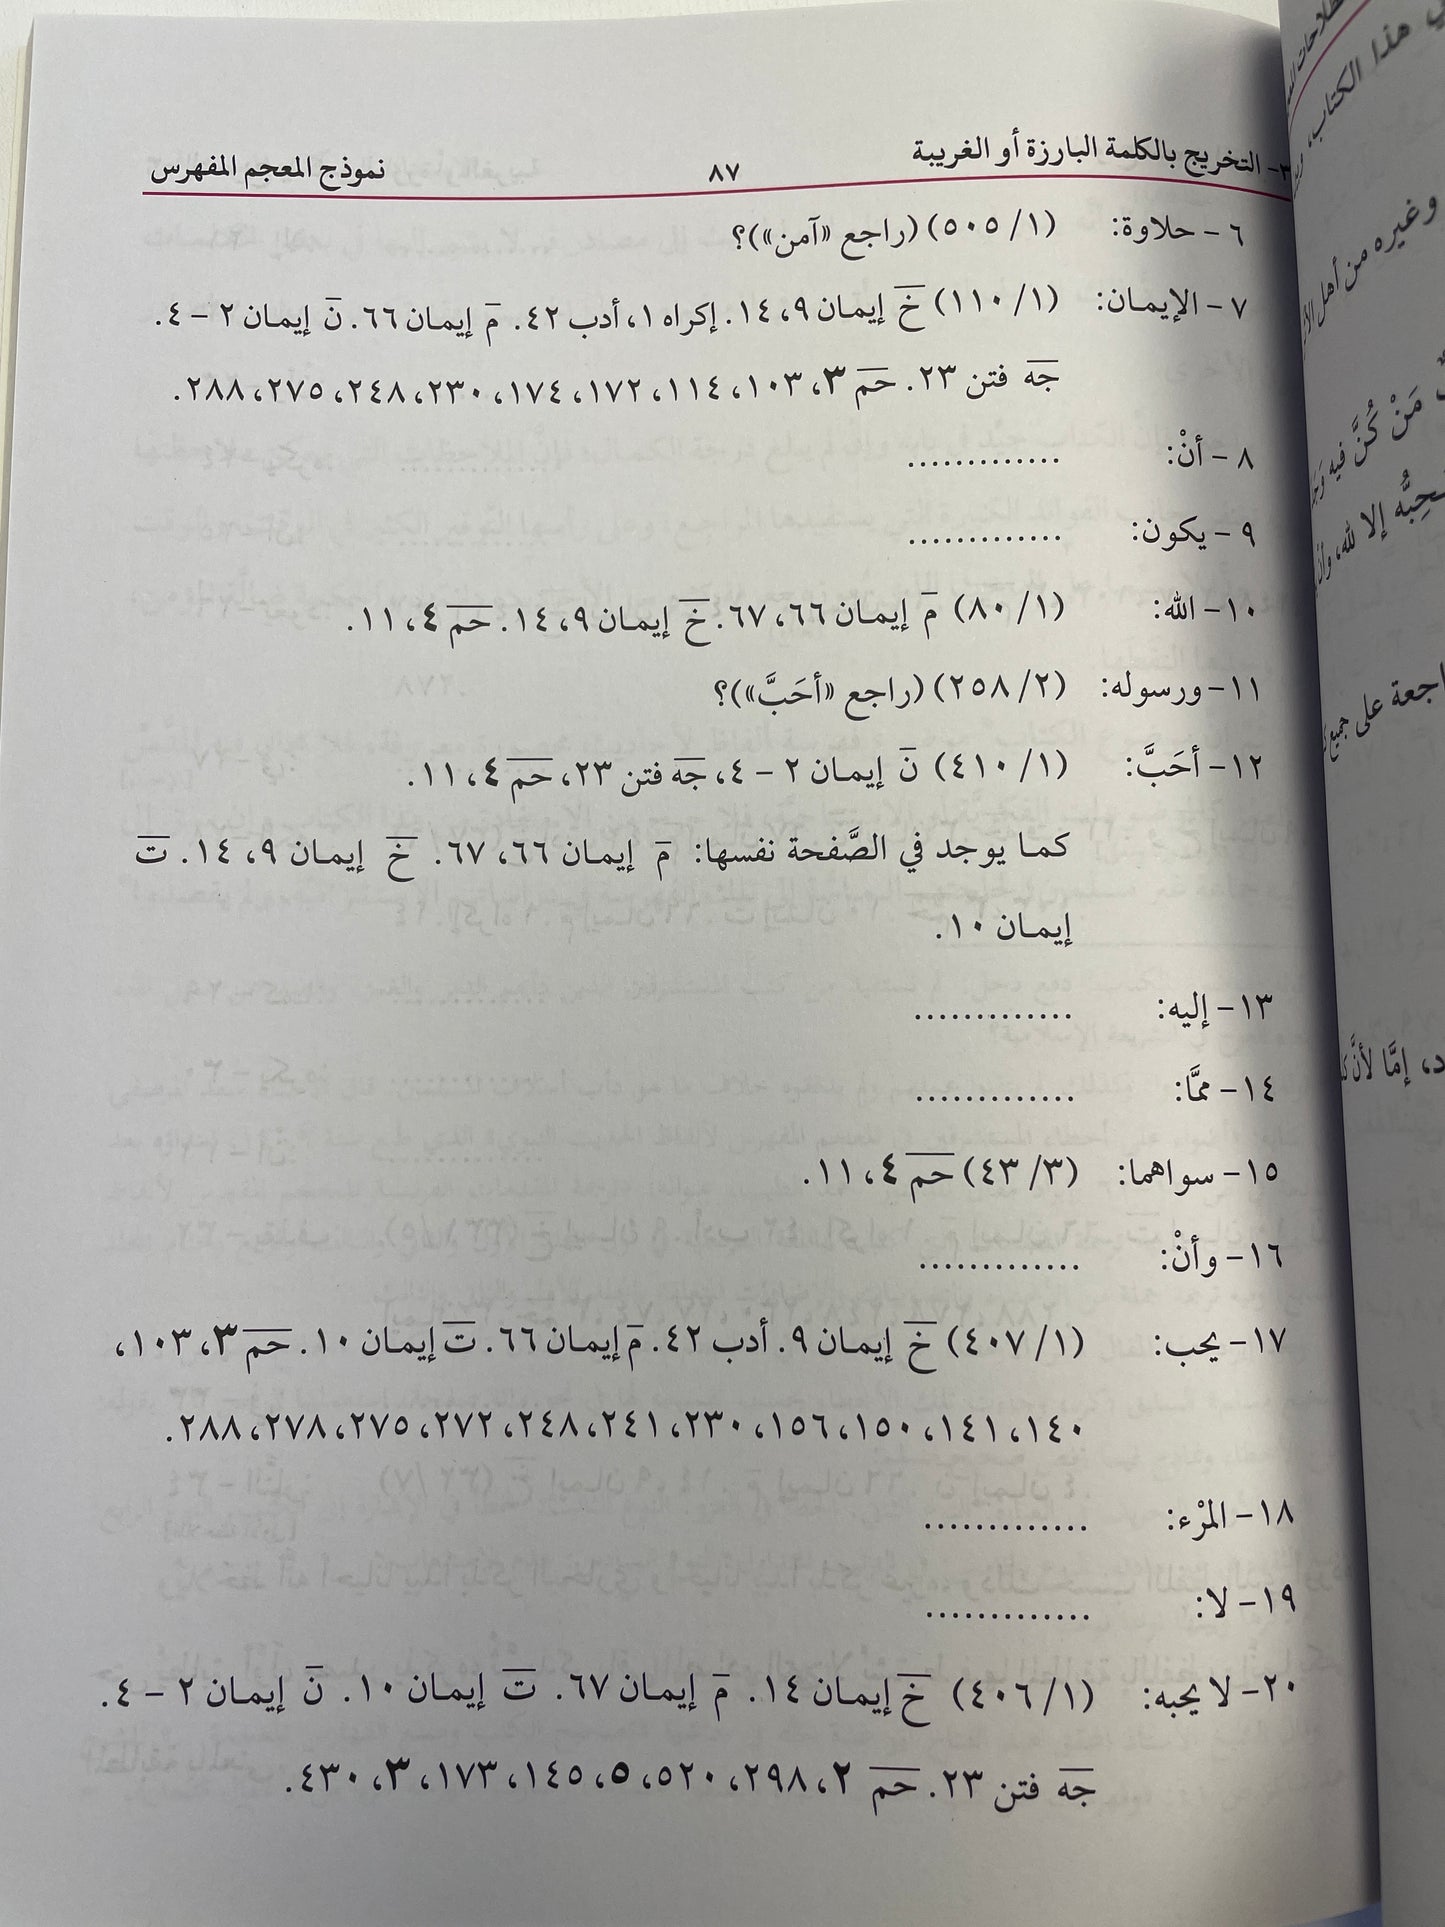 ٣- التخريج بالكلمة البارزة أو الغريبة ٨٧ نموذج المعجم المفهرس
٦ - حلاوة: (١/ ٥٠٥) (راجع «آمن»)؟
٧ - الإيمان: (١/ ١١٠) خَ إيمان ٩، ١٤. إكراه ١، أدب ٤٢. مَ إيمان ٦٦. نَ إيمان ٢ - ٤.
جَه فتن ٢٣. حَم ٣، ١٠٣، ١١٤، ١٧٢، ١٧٤، ٢٣٠، ٢٤٨، ٢٧٥، ٢٨٨.
٨ - أنْ: .............
٩ - يكون: .............
١٠- الله: (١/ ٨٠) مَ إيمان ٦٦، ٦٧. خَ إيمان ٩، ١٤. حَم ٤، ١١.
١١- ورسوله: (٢/ ٢٥٨) (راجع «أحَبَّ»)؟
١٢- أحَبَّ: (١/ ٤١٠) نَ إيمان ٢ - ٤، جَه فتن ٢٣، حَم ٤، ١١.
كما يوجد في الصَّفحة نفسها: مَ إيمان ٦٦، ٦٧. خَ إيمان ٩، ١٤. تَ
إيمان ١٠.
١٣- إليه: .............
١٤- ممَّا: .............
١٥- سواهما: (٣/ ٤٣) حَم ٤، ١١.
١٦- وأنْ: .............
١٧- يحب: (١/ ٤٠٧) خَ إيمان ٩. أدب ٤٢. مَ إيمان ٦٦. تَ إيمان ١٠. حَم ٣، ١٠٣،
١٤٠، ١٤١، ١٥٠، ١٥٦، ٢٣٠، ٢٤١، ٢٤٨، ٢٧٢، ٢٧٥، ٢٧٨، ٢٨٨.
١٨- المرْء: .............
١٩- لا: .............
٢٠- لا يحبه: (١/ ٤٠٦) خَ إيمان ١٤. مَ إيمان ٦٧. تَ إيمان ١٠. نَ إيمان ٢ - ٤.
جَه فتن ٢٣. حَم ٢، ٢٩٨، ٥٢٠، ٥، ١٤٥، ١٧٣، ٣، ٤٣٠.
هذا الكتاب،
وغيره من أهل
مَنْ كُنَّ فيه
إلا لله، وأن
على جميع
إمَّا لأنَّ